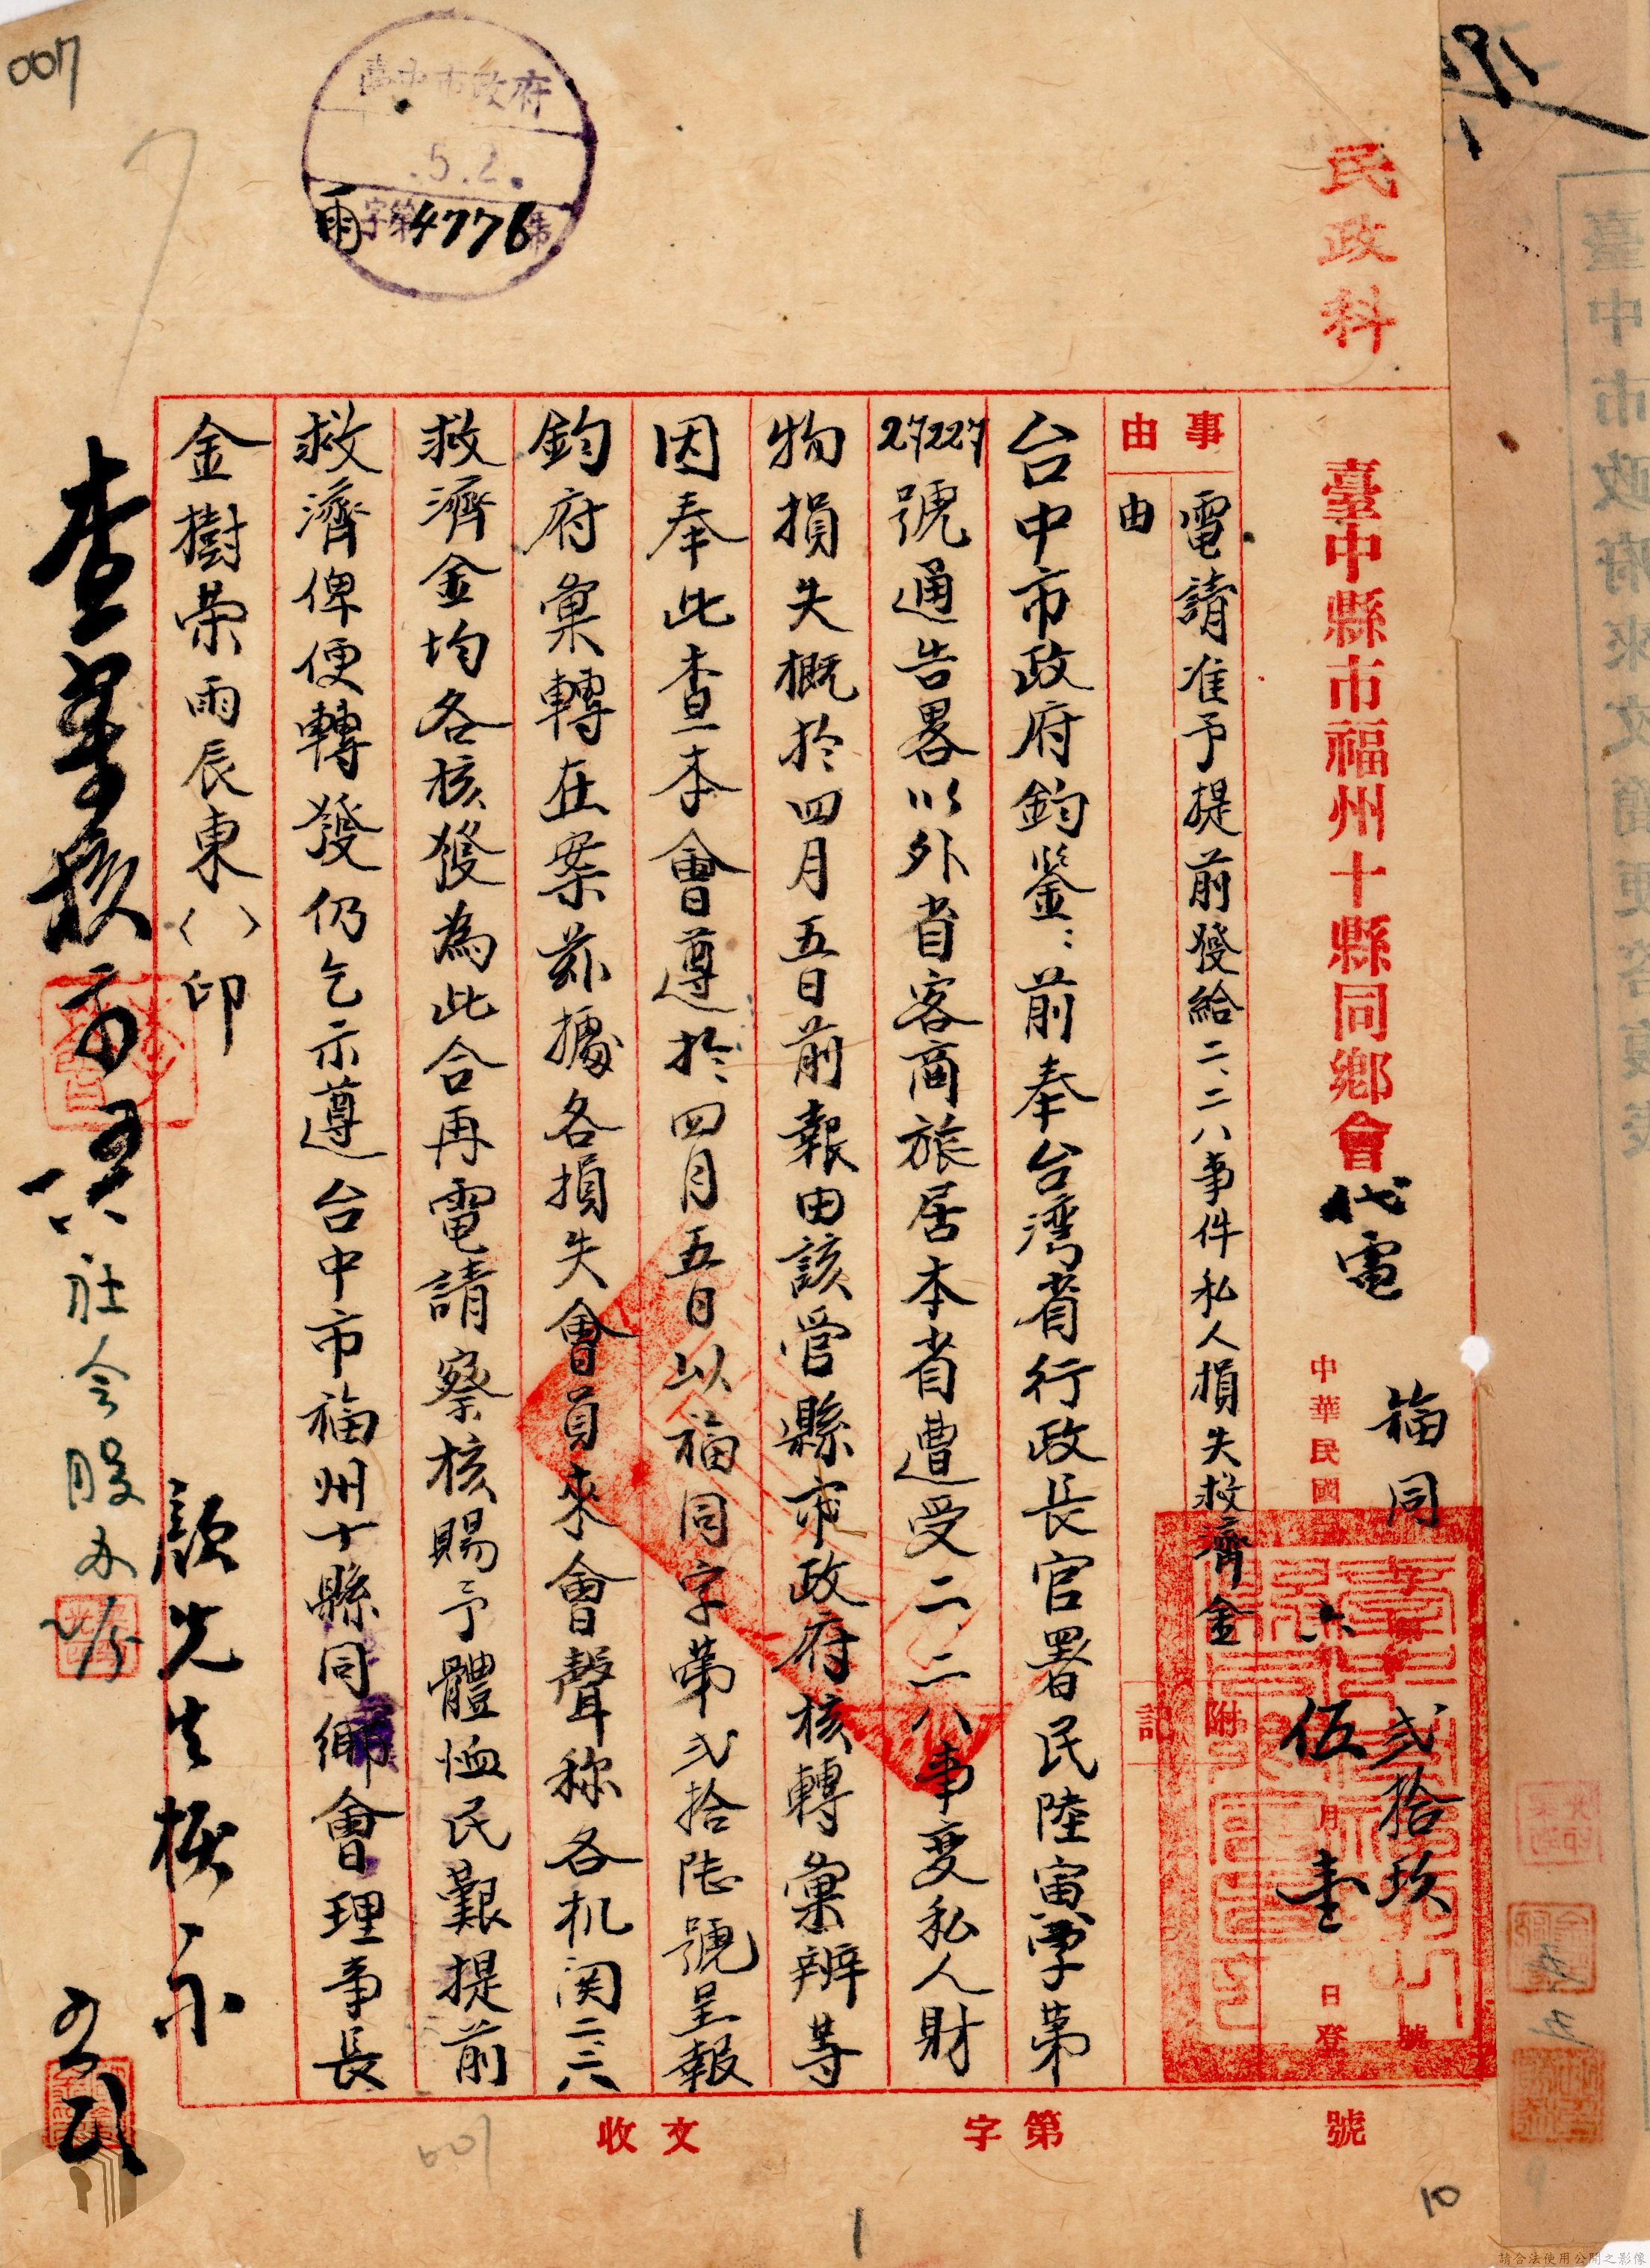 007
臺中市政府
5.2.
雨字第4776號
民政科
臺中縣市福州十縣同鄉會代電
福同字第弍拾玖號
中華民國卅六年伍月壹日登
事由
電請准予提前發給二、二八事件私人損失救濟金
由
附記
台中市政府鈞鑒：前奉台灣省行政長官署民陸寅字第
27227號通告畧以外省客商旅居本省遭受二、二八事変私人財
物損失概於四月五日前報由該管縣市政府核轉彙辦等
因奉此查本會遵於四月五日以福同字第弍拾陸號呈報
鈞府彙轉在案茲據各損失會員來會聲称各机関二二八
救濟金均各核發為此合再電請察核賜予體恤民艱提前
救濟俾便轉發仍乞示遵台中市福州十縣同鄉會理事長
金樹荣雨辰東〈〉印
查案核
社会股
顏先生
收文
字第
號
001
1
10
臺中市政府來文簡便答復表
請合法使用公開之影像